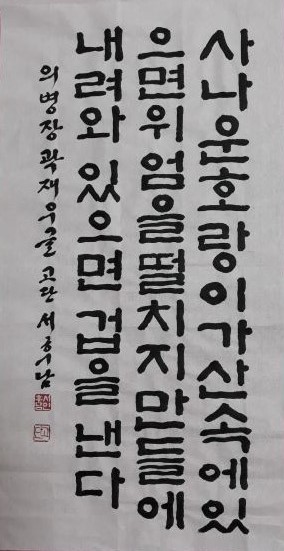 사나운호랑이가산속에있
으면위엄을떨치지만들에
내려와 있으면 겁을 낸다
의병장 곽재우글 고단 서후남